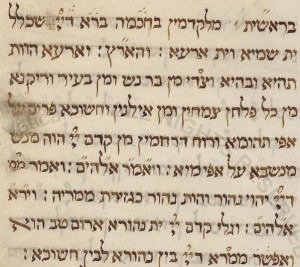 בראשית מלקדמין בחכמה ברא דייי שכלל
ית שמיא וית ארעא : והארץ : וארעא הוות
תהיא ובהיא וצדי מן בר נש ומן בעיר וריקנא
מן כל פלחן צמחין ומן אילנין וחשוכא פריס על
אפי תהומא ורוח דרחמין מן קדם ייי הוה מנשבא
מנשבא על אפי מיא : ויאמר אלהים : ואמר
דייי יהוי נהור והות נהור כגזירת ממריה : וירא
אלהים : וגלי קדם ייי ית נהורא ארום טב הוא
ואפרש ממרא דייי בין נהורא לבין חשוכא :